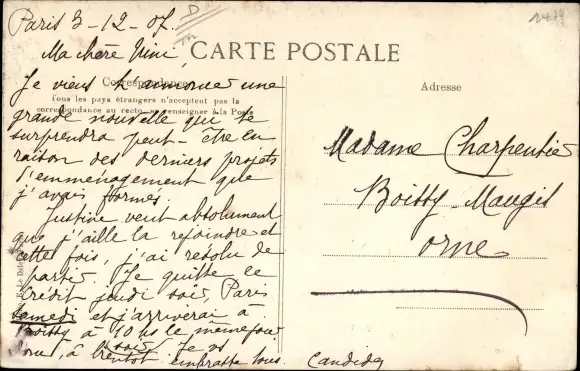 Paris 3-12-07.
Ma chère Nini,
CARTE POSTALE
Correspondance
Tous les pays étrangers n'acceptent pas la
correspondance au recto, se renseigner à la Poste
Je viens t'annoncer une
grande nouvelle qui te
surprendra peut-être en
raison des derniers projets
d'emménagement que
j'avais formés.
Justine veut absolument
que j'aille la rejoindre et
cette fois, j'ai résolu de
partir. Je quitte le
Crédit jeudi soir, Paris
samedi et j'arriverai à
Boissy à 10 hs le même jour
soir
donc, à bientôt Je vs
embrasse tous.
Candide
Adresse
Madame Charpentier
Boissy-Maugis
Orne